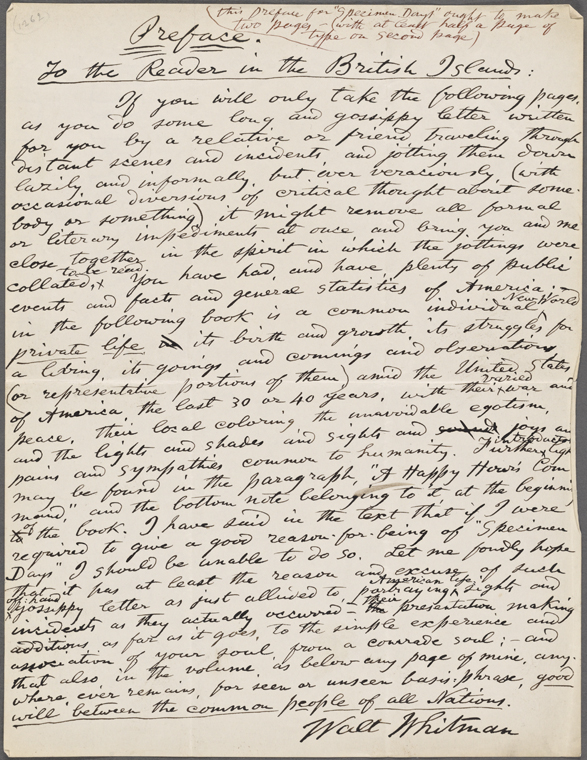 (1262)
(this preface for "Specimen Days" ought to make
two pages — (with at least half a page of
type on second page)
Preface.
To the Reader in the British Islands:
If you will only take the following pages,
as you do some long and gossippy letter written
for you by a relative or friend traveling through
distant scenes and incidents, and jotting them down
lazily and informally, but ever veraciously, (with
occasional diversions of critical thought about some-
body or something) it might remove all formal
or literary impediments at once and bring you and me
close together in the spirit in which the jottings were
collated, to be read. You have had, and have, plenty of public
events and facts and general statistics of America;—
in the following book is a common individual New World
private life, its birth and growth its struggles for
a living, its goings and comings and observations
(or representative portions of them) amid the United States
of America the last 30 or 40 years, with their varied war and
peace, their local coloring, the unavoidable egotism,
and the lights and shades and sights and joys and
pains and sympathies common to humanity. Further introductory light
may be found in the paragraph, "A Happy Hour's Com
mand," and the bottom note belonging to it, at the beginning
of the book. I have said in the text that if I were
required to give a good reason-for-being of "Specimen
Days" I should be unable to do so. Let me fondly hope
that it has at least the reason and excuse of such
off-hand gossippy letter as just allied to, portraying American life-sights and
incidents as they actually occurred — their presentation, making
additions as far as it goes, to the simple experience and
association of your soul, from a comrade soul;—and
that also, in the volume, as below any page of mine, any-
where ever remains, for seen or unseen basis-phrase, good
will between the common people of all Nations.
Walt Whitman